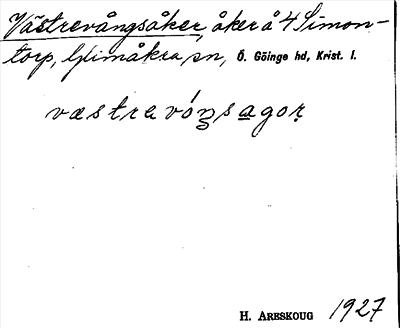 Västrevångsåker, åker å 4 Simon-
torp, Glimåkra sn, Ö. Göinge hd, Krist. l.
væstrevóŋsagoṛ
H. ARESKOUG 1927